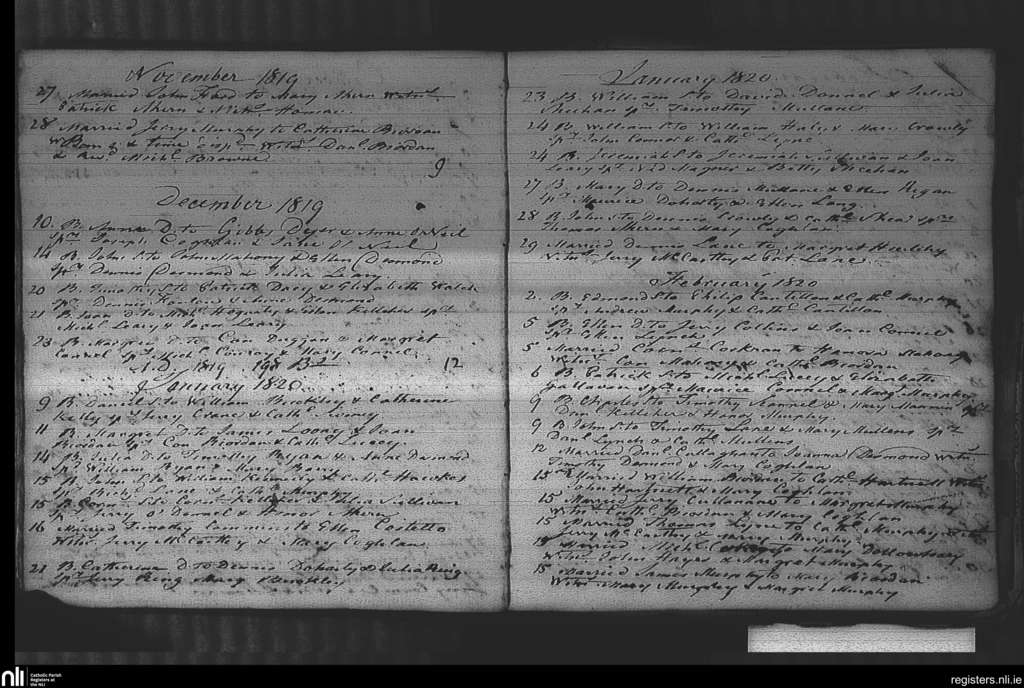 November 1819
27 Married John Ford to Mary Ahern Witns
Patrick Ahern &
28 Married Jerry Murphy to Catherine Riordan
Danl Riordan
& Revd Michl Browne
9
December 1819
10. B. Anne D. to Gibbs Dyer & Anne O'Neil
Sprs Joseph Coghlan & Jane O'Neil
14 B. John S. to John Mahony & Ellen Desmond
Sprs Dennis Desmond & Julia Leary
20 B. Timothy S. to Patrick Dacy & Elizabeth Walsh
Sprs Dennis & Anne Desmond
21 B. Joan D. to Michl Hogarty & Ellen Kelleher sprs
Michl Leary & Joan Leary
23 B. Margret D. to Con Duggan & Margret
Connel Sprs Michl Conroy & Mary Connel
1819 198 12
January 1820
9 B. Daniel S. to William Buckley & Catherine
Kelly sprs Jerry Crane & Cathe
11 B. Margret D. to James Loony & Joan
Riordan Sprs Con Riordan & Cathe Lucey
14 B. Julia D. to Timothy Ryan & Anne Desmond
Sprs William Ryan & Mary Barry
15 B. John S. to William Kennedy & Cathe Hawkes
15 B. Corns S. to Corns Kelleher & Julia Sullivan
O'Donnel &
16 Married Timothy Cummins to Ellen Costello
Witns Jerry McCarthy & Mary Coghlan
21 B. Catherine D. to Dennis Doharty & Julia Ring
Sprs Jerry Ring Mary Buckley
January 1820
23 B. William S. to David Donnel & Julia
Meehan sprs Timothy Mullane
24 B. William S. to William Haly & Mary Crowly
Sprs John Connor & Cathe Lyne
24 B. Jeremiah S. to Jeremiah & Joan
Leary sprs Wm Magner & Betty Meehan
27 B. Mary D. to Dennis Mullane & Ellen Regan
Sprs Maurice Doharty & Ellen Lang
28 B. John S. to Dennis Crowly & Cathe Shea sprs
Thomas Ahern & Mary Coghlan
29 Married Dennis Lane to Margret
Witns Jerry McCarthy & Lane
February 1820
2. B. Edmond S. to Philip Cantillon & Cathe Murphy
Sprs Andrew Murphy & Cathe Cantillon
5 B. Ellen D. to Jerry Collins & Joan Connel
Sprs Ellen Lynch
5 Married Corns Corkran to Hanora Mahony
Witns Con Mahony & Cathe Riordan
6 B. Patrick S. to Michl Lucey & Elizabeth
Gallavan sprs Maurice Connel & Mary Murphy
9 B. Charles S. to Timothy Connel & Mary Mannin sprs
Danl Kelleher & Hanora Murphy
9 B. John S. to Timothy Lane & Mary Mullens sprs
Danl Lynch & Cathe Mullens
12 Married Danl Callaghan to Joanna Desmond Witns
Timothy Desmond & Mary Coghlan
15 Married William Riordan to Cathe Hartnell Witns
Jim Hartnett & Mary Coghlan
15 Married Cullanane to Margret Murphy
Witns Cathe Riordan & Mary Coghlan
15 Married Thomas Lyne to Cathe Murphy
Jerry McCarthy & Murphy
15 Married Michl to Mary
Witns John Hayes & Margret Murphy
15 Married James Murphy to Mary Riordan
Witns Mary Murphy & Margret Murphy
nli
Catholic Parish
Registers at
the NLI
registers.nli.ie